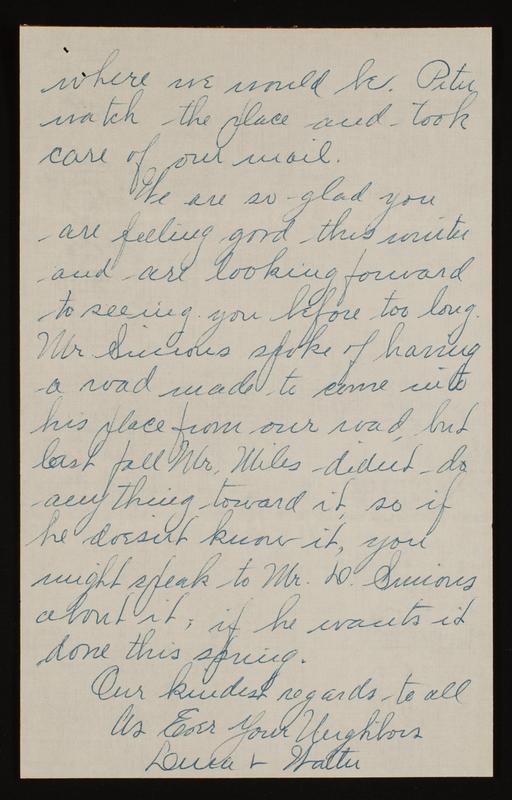 where we would be. Peter
watch the place and took
care of our mail.
We are so glad you
are feeling good this winter
and are looking forward
to seeing you before too long.
Mr. Simons spoke of having
a road made to come into
his place from our road, but
last fall Mr. Miles didn't do
anything toward it, so if
he doesn't know it, you
might speak to Mr. D. Simons
about it; if he wants it
done this spring.
Our kindest regards to all
As Ever Your Neighbors
& Walter